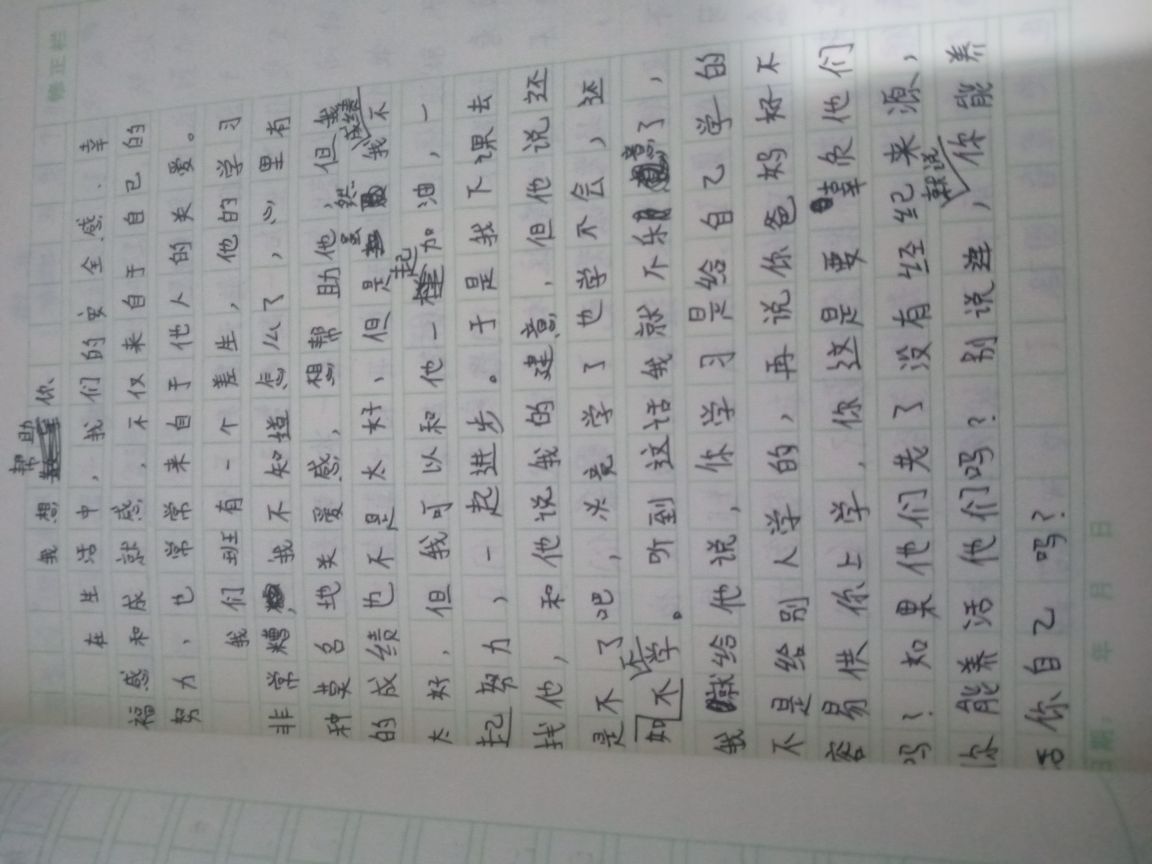 修正栏
我想帮助你
在生活中，我们的安全感、幸
福感和成就感，不仅来自于自己的
努力，也常常来自于他人的关爱。
我们班有一个差生，他的学习
非常糟，我不知道怎么了，心里有
种莫名地关爱感，想帮助他，但我
的成绩也不是太好，但是虽然我成绩不
太好，但我可以和他一起加油，一
起努力，一起进步。于是我下课去
找他，和他说我的建意，但他说还
是不了吧，必竟学了也学不会，还
如不学。听到这话我就不乐意了，
我给他说，你学习是给自己学的
不是给别人学的，再说你爸妈好不
容易供你上学，你这是要辜负他们
吗？如果他们老了没有经纪来源，
你能养活他们吗？别说，就说你能养
活你自己吗？
日期： 年 月 日